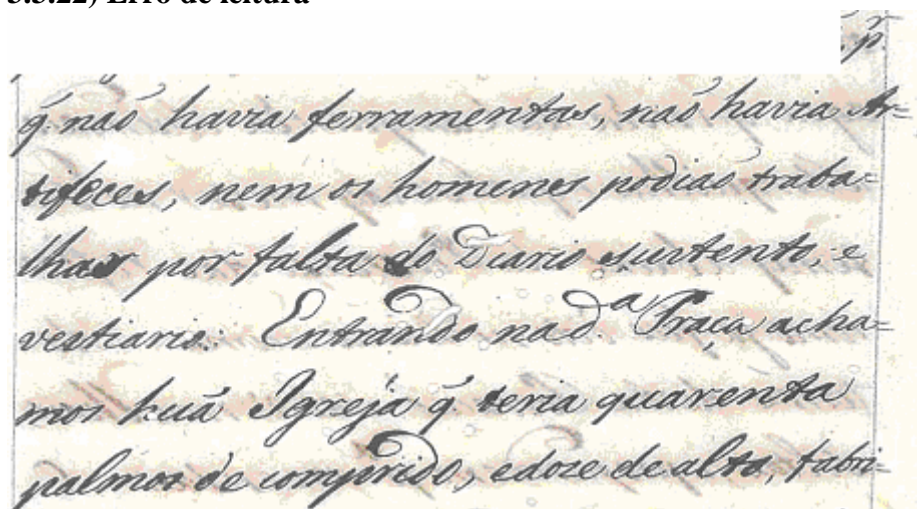 3.3.22) Erro de leitura
p.r
q̃. naõ havia ferramentas, naõ havia Ar=
tifeces, nem os homenes podiaõ traba=
lhar por falta do Diario sustento, e
vestiario: Entrando na d.ª Praça acha=
mos huã Igreja q̃. teria quarenta
palmos de comprido, edoze de alto, fabri=